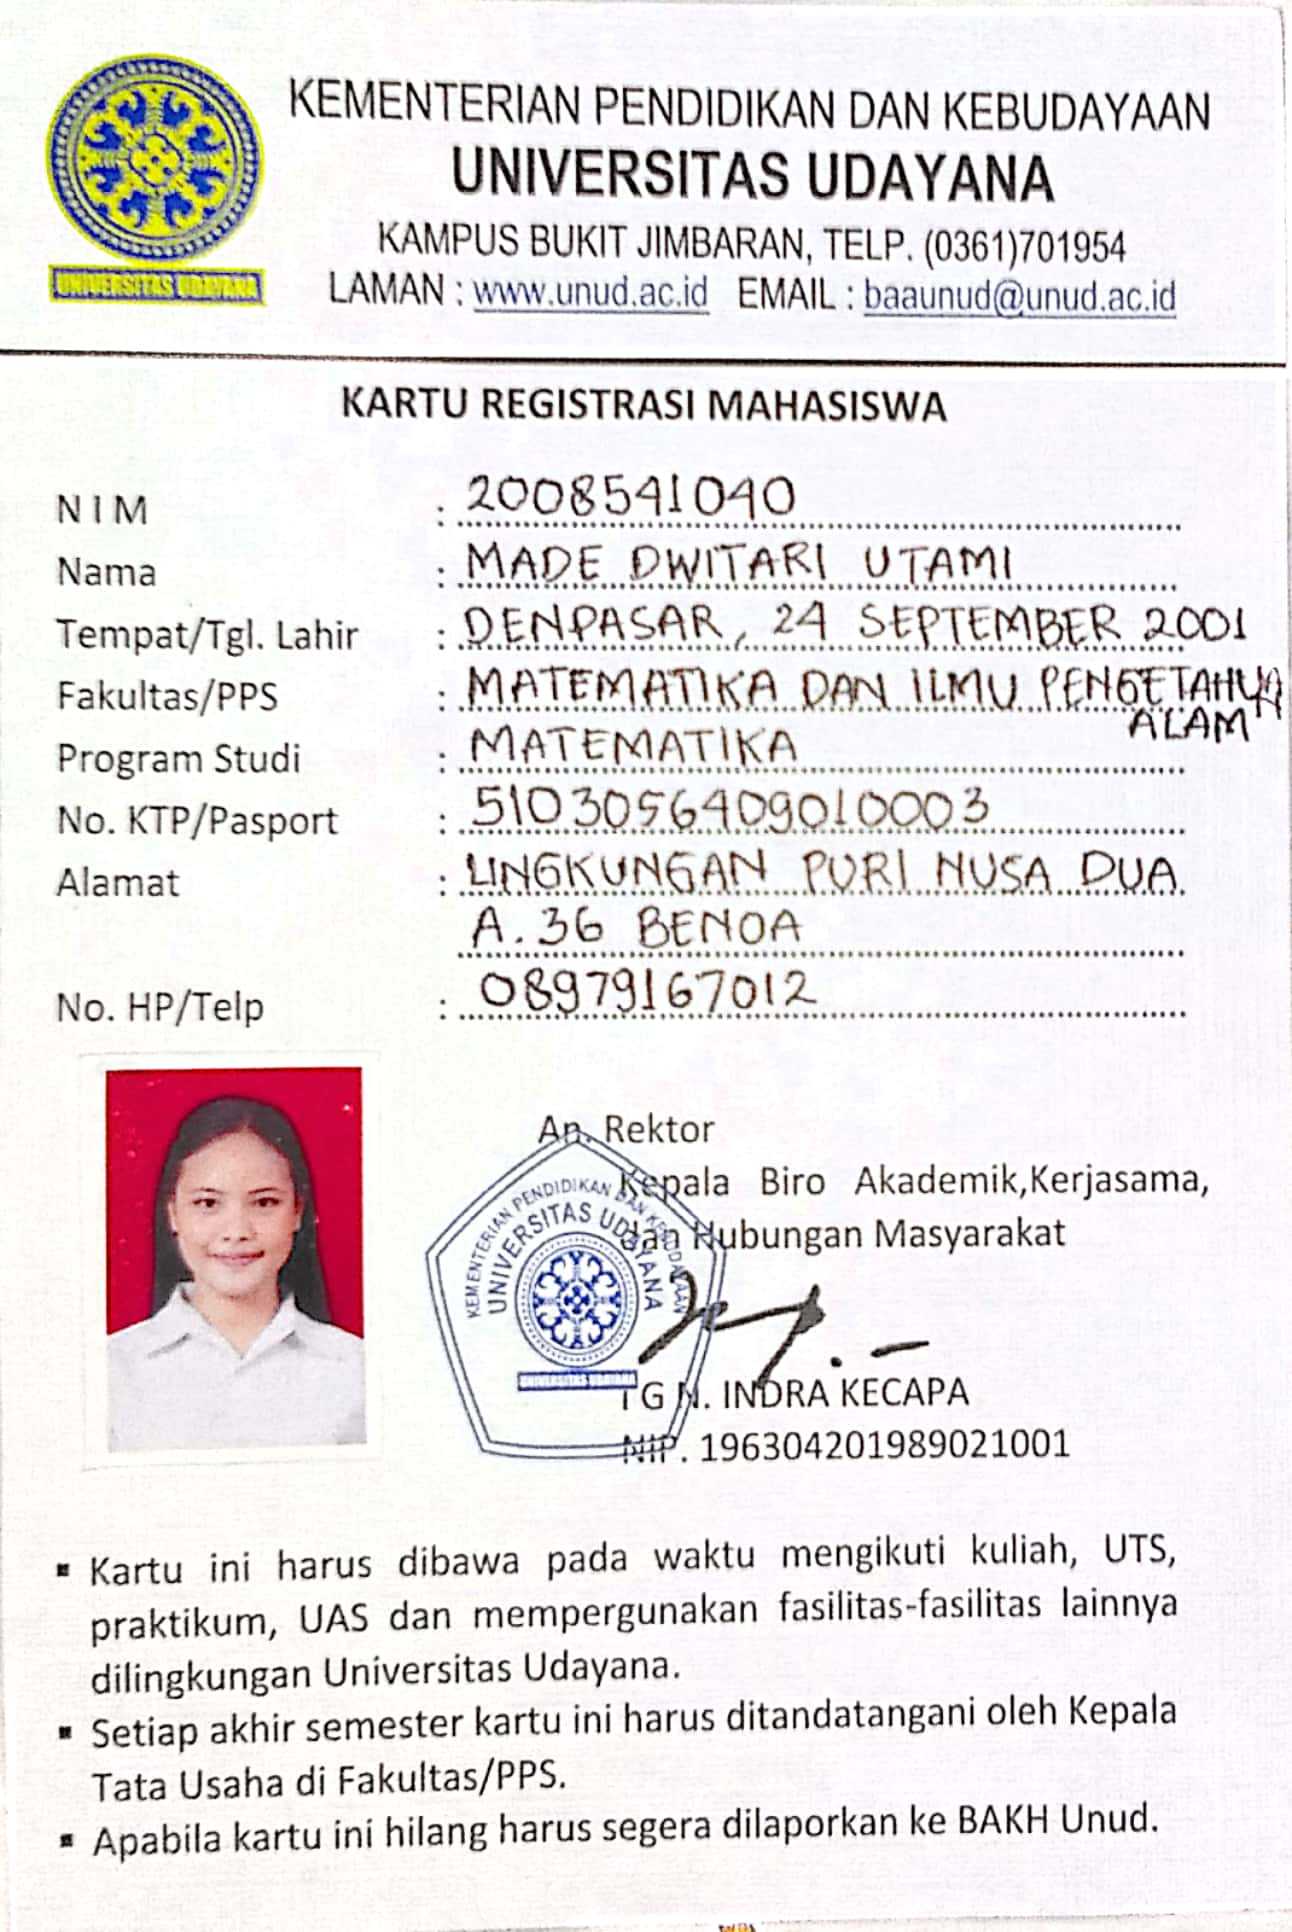 KEMENTERIAN PENDIDIKAN DAN KEBUDAYAAN
UNIVERSITAS UDAYANA
KAMPUS BUKIT JIMBARAN, TELP. (0361)701954
LAMAN : www.unud.ac.id EMAIL : baaunud@unud.ac.id
UNIVERSITAS UDAYANA
KARTU REGISTRASI MAHASISWA
N I M : 2008541040
Nama : MADE DWITARI UTAMI
Tempat/Tgl. Lahir : DENPASAR, 24 SEPTEMBER 2001
Fakultas/PPS : MATEMATIKA DAN ILMU PENGETAHUAN
ALAM
Program Studi : MATEMATIKA
No. KTP/Pasport : 5103056409010003
Alamat : LINGKUNGAN PURI NUSA DUA
A. 36 BENOA
No. HP/Telp : 08979167012
An. Rektor
Kepala Biro Akademik,Kerjasama,
dan Hubungan Masyarakat
KEMENTERIAN PENDIDIKAN DAN KEBUDAYAAN
UNIVERSITAS UDAYANA
UNIVERSITAS UDAYANA
I G N. INDRA KECAPA
NIP. 196304201989021001
▪ Kartu ini harus dibawa pada waktu mengikuti kuliah, UTS,
praktikum, UAS dan mempergunakan fasilitas-fasilitas lainnya
dilingkungan Universitas Udayana.
▪ Setiap akhir semester kartu ini harus ditandatangani oleh Kepala
Tata Usaha di Fakultas/PPS.
▪ Apabila kartu ini hilang harus segera dilaporkan ke BAKH Unud.